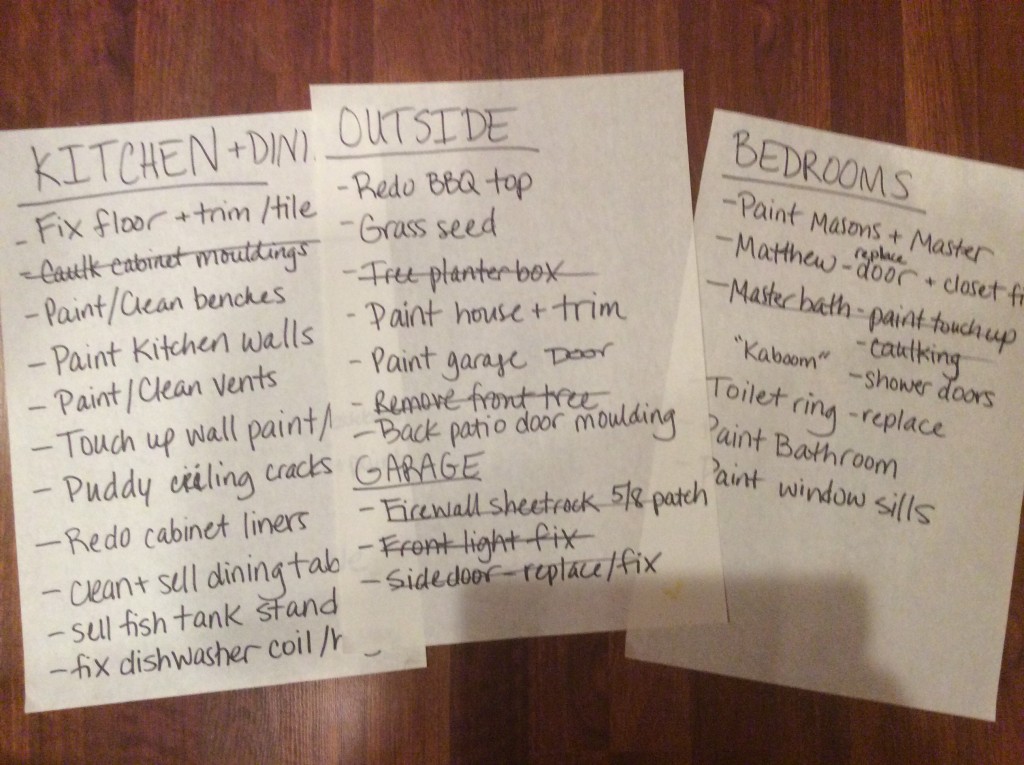 KITCHEN + DINI
- Fix floor + trim/tile
- Caulk cabinet mouldings
- Paint/Clean benches
- Paint Kitchen walls
- Paint/Clean vents
- Touch up wall paint/
- Puddy ceiling cracks
- Redo cabinet liners
- clean + sell dining tab
- sell fish tank stand
- fix dishwasher coil/
OUTSIDE
- Redo BBQ top
- Grass seed
- Tree planter box
- Paint house + trim
- Paint garage Door
- Remove front tree
- Back patio door moulding
GARAGE
- Firewall sheetrock 5/8 patch
- Front light fix
- Side door - replace/fix
BEDROOMS
- Paint Masons + Master
- Matthew - replace door + closet fi
- Master bath - paint touch up
- caulking
"Kaboom" - shower doors
Toilet ring - replace
Paint Bathroom
Paint window sills